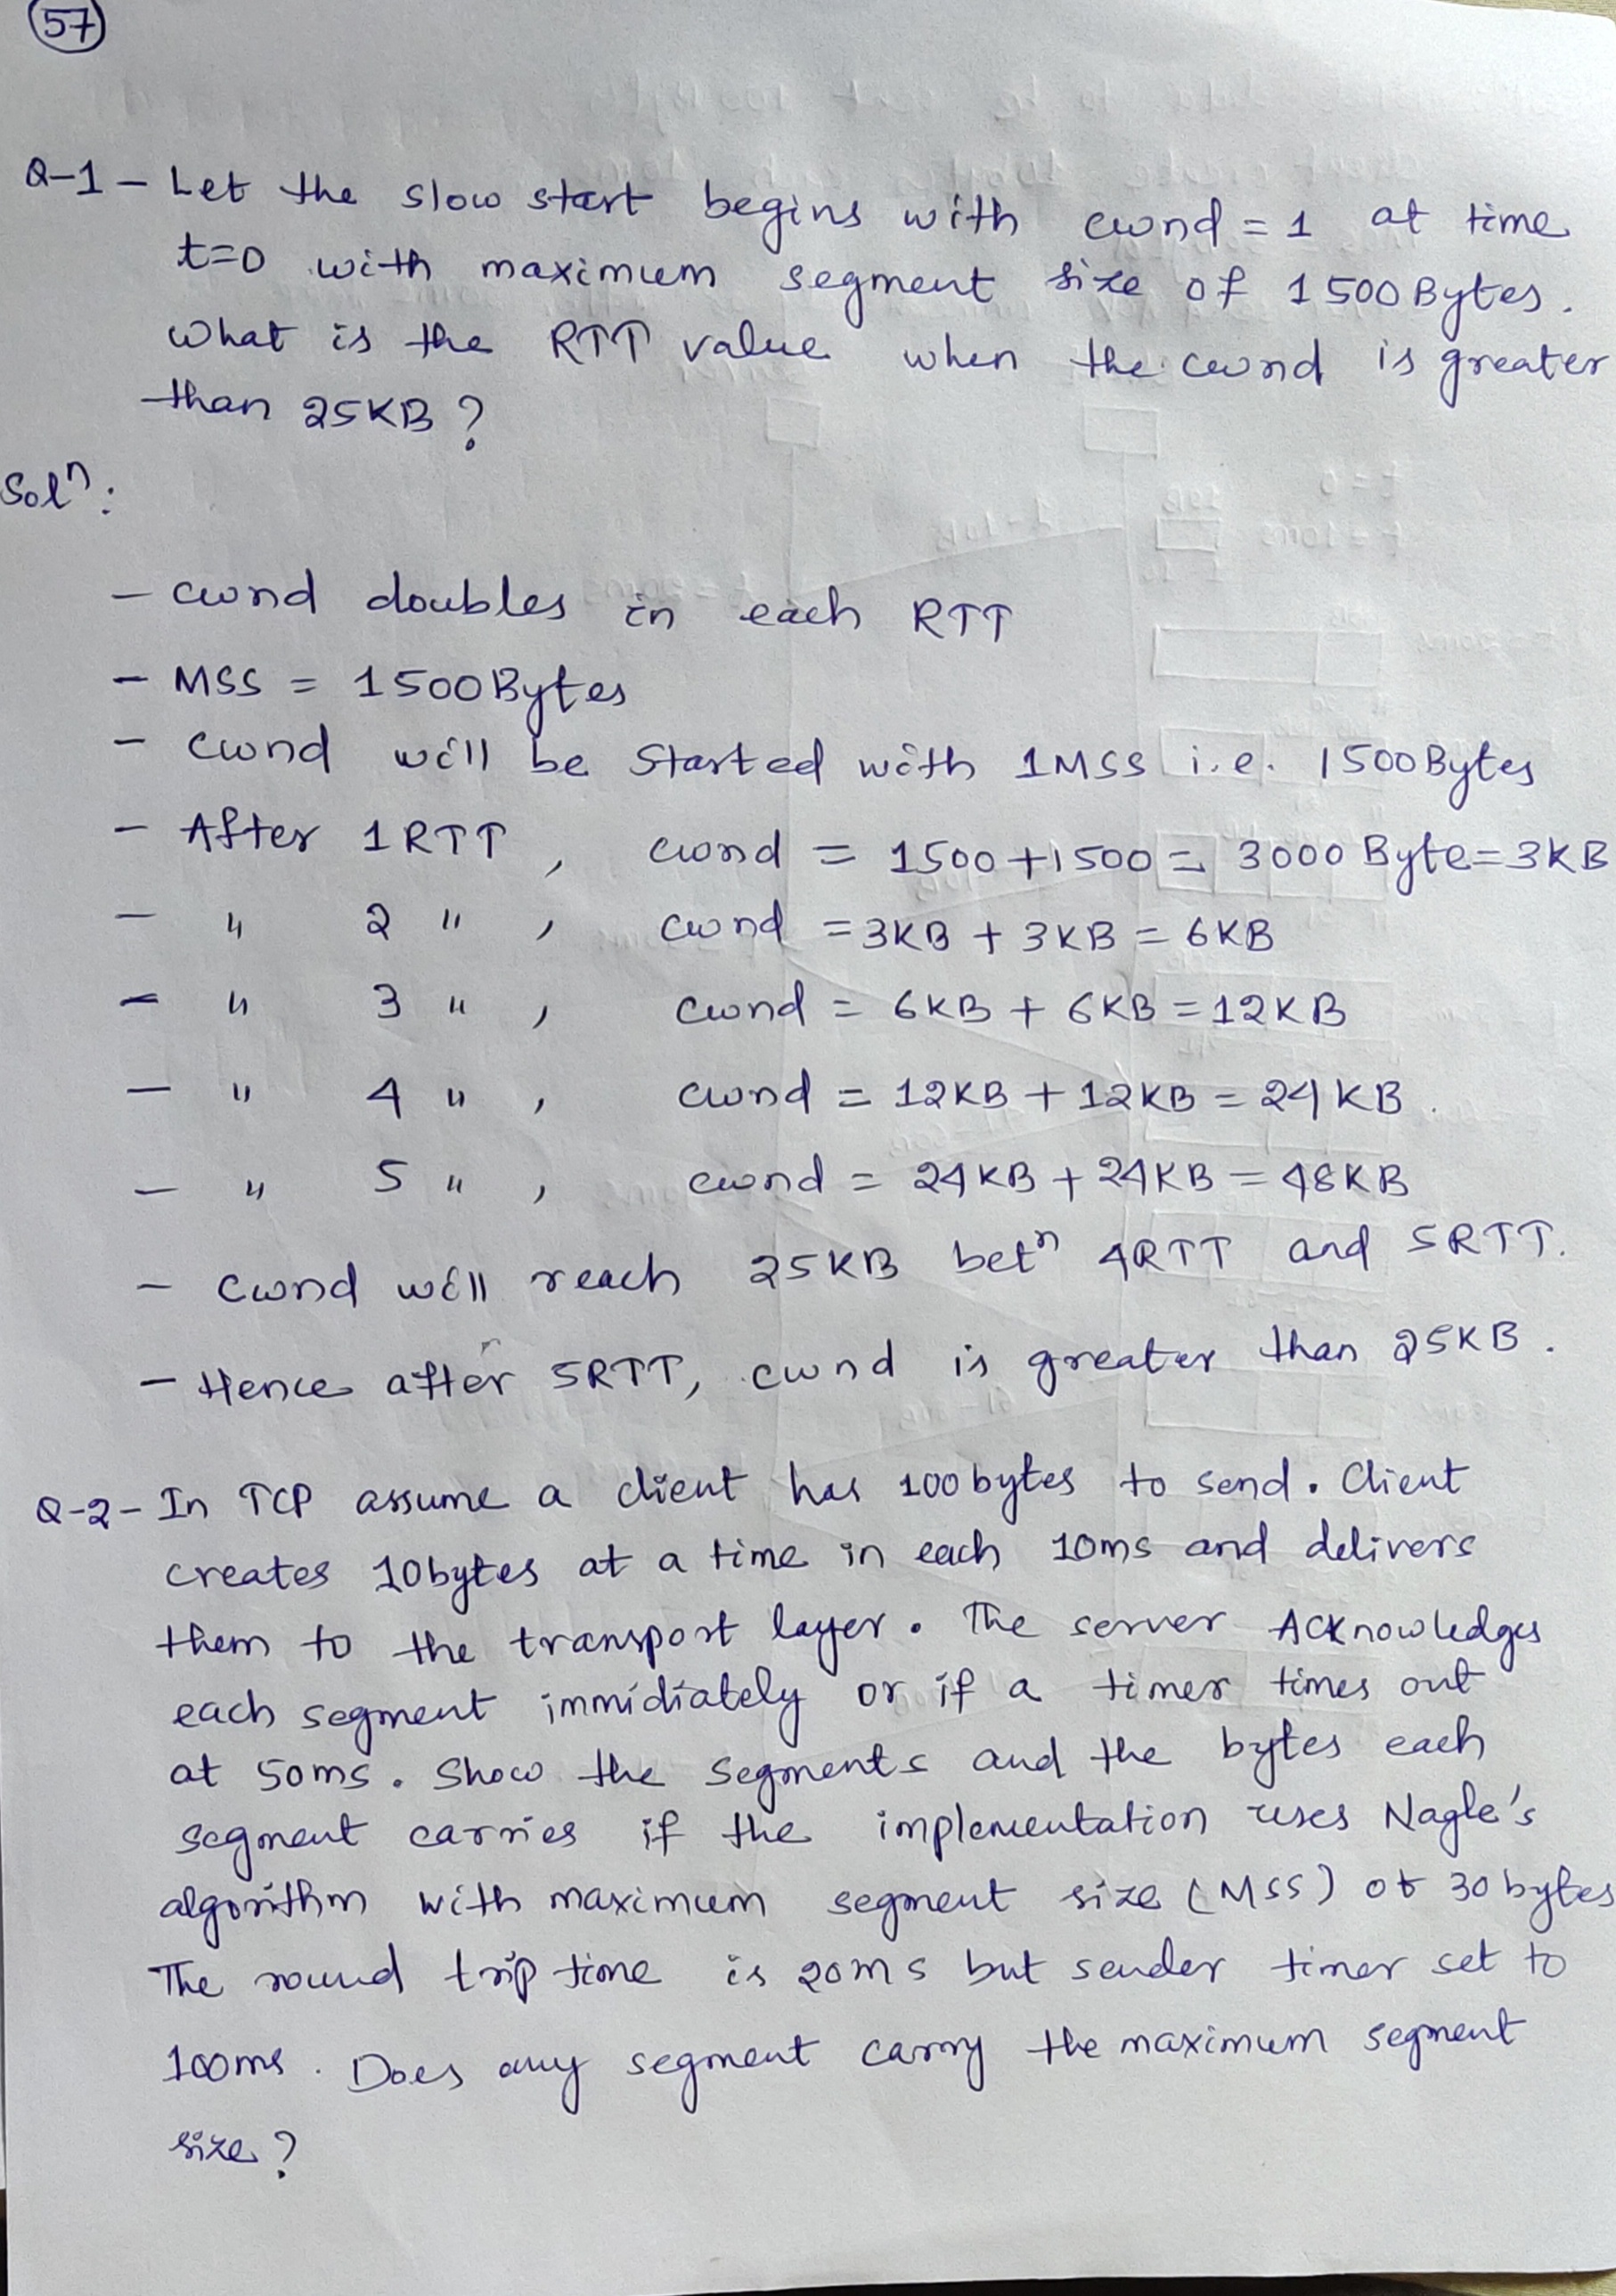 57
Q-1 - Let the slow start begins with cwnd = 1 at time
t=0 with maximum segment size of 1500Bytes.
What is the RTT value when the cwnd is greater
than 25KB?
Solⁿ:
- cwnd doubles in each RTT
- MSS = 1500Bytes
- cwnd will be Started with 1MSS i.e. 1500Bytes
- After 1RTT, cwnd = 1500+1500 = 3000 Byte=3KB
- " 2 ", cwnd = 3KB + 3KB = 6KB
- " 3 ", cwnd = 6KB + 6KB = 12KB
- " 4 ", cwnd = 12KB + 12KB = 24KB.
- " 5 ", cwnd = 24KB + 24KB = 48KB
- cwnd will reach 25KB betⁿ 4RTT and 5RTT.
- Hence after 5RTT, cwnd is greater than 25KB.
Q-2 - In TCP assume a client has 100bytes to send. Client
creates 10bytes at a time in each 10ms and delivers
them to the transport layer. The server ACKnowledges
each segment immidiately or if a timer times out
at 50ms. Show the segments and the bytes each
segment carries if the implementation uses Nagle's
algorithm with maximum segment size (MSS) of 30bytes
The round trip time is 20ms but sender timer set to
100ms. Does any segment carry the maximum segment
size?